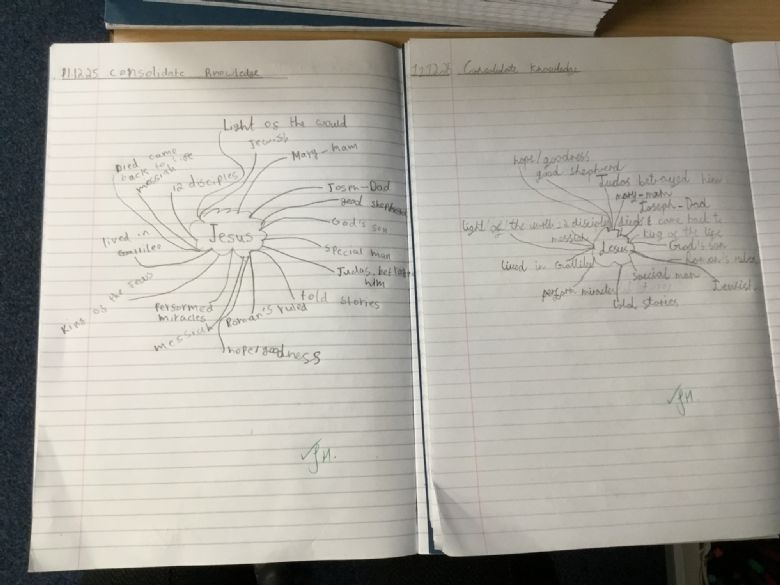 11.12.25 Consolidate Knowledge
Light of the would
Jewish
Mary-mam
Died came
back to life
messiah
12 disciples
Joseph-Dad
good shepherd
God's son
Jesus
special man
lived in
Gallilee
Judas betrayed
him
King of the Jews
told stories
performed
miracles
Roman's ruled
messiah
hope/goodness
Consolidate Knowledge
hope/goodness
good shepherd
Judas betrayed him
mary-mam
Joseph-Dad
light of the world
12 disciples
died & came back to
messiah
King of the
Jesus
God's son
Roman's ruled
lived in Gallilee
special man
Jewish
perform miracles
told stories